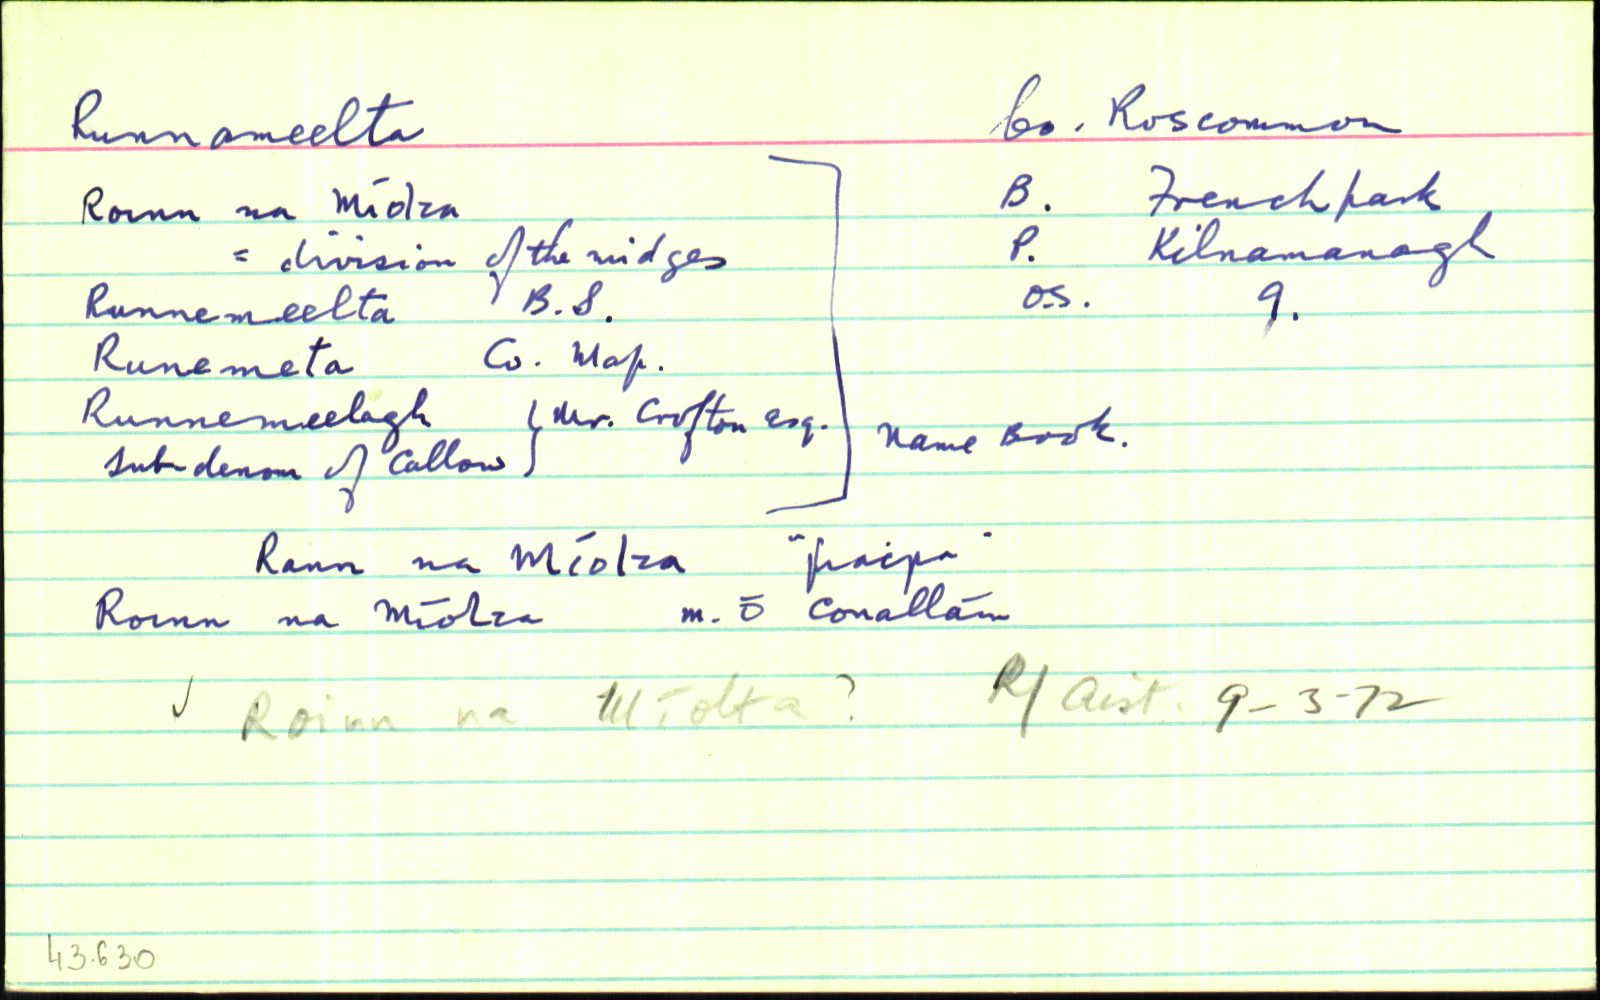 Runnameelta Co. Roscommon
Roinn na Míolta B. Frenchpark
= division of the midges P. Kilnamanagh
Runnemeelta B.S. O.S. 9.
Runemeta Co. Map.
Runnemeelagh } Mr. Crofton esq.
sub-denom of Callow } Name Book.
Rann na Míolta
Roinn na Míolta m. ó Conalláin
✓ Roinn na Míolta? R/ Aist. 9-3-72
43.630